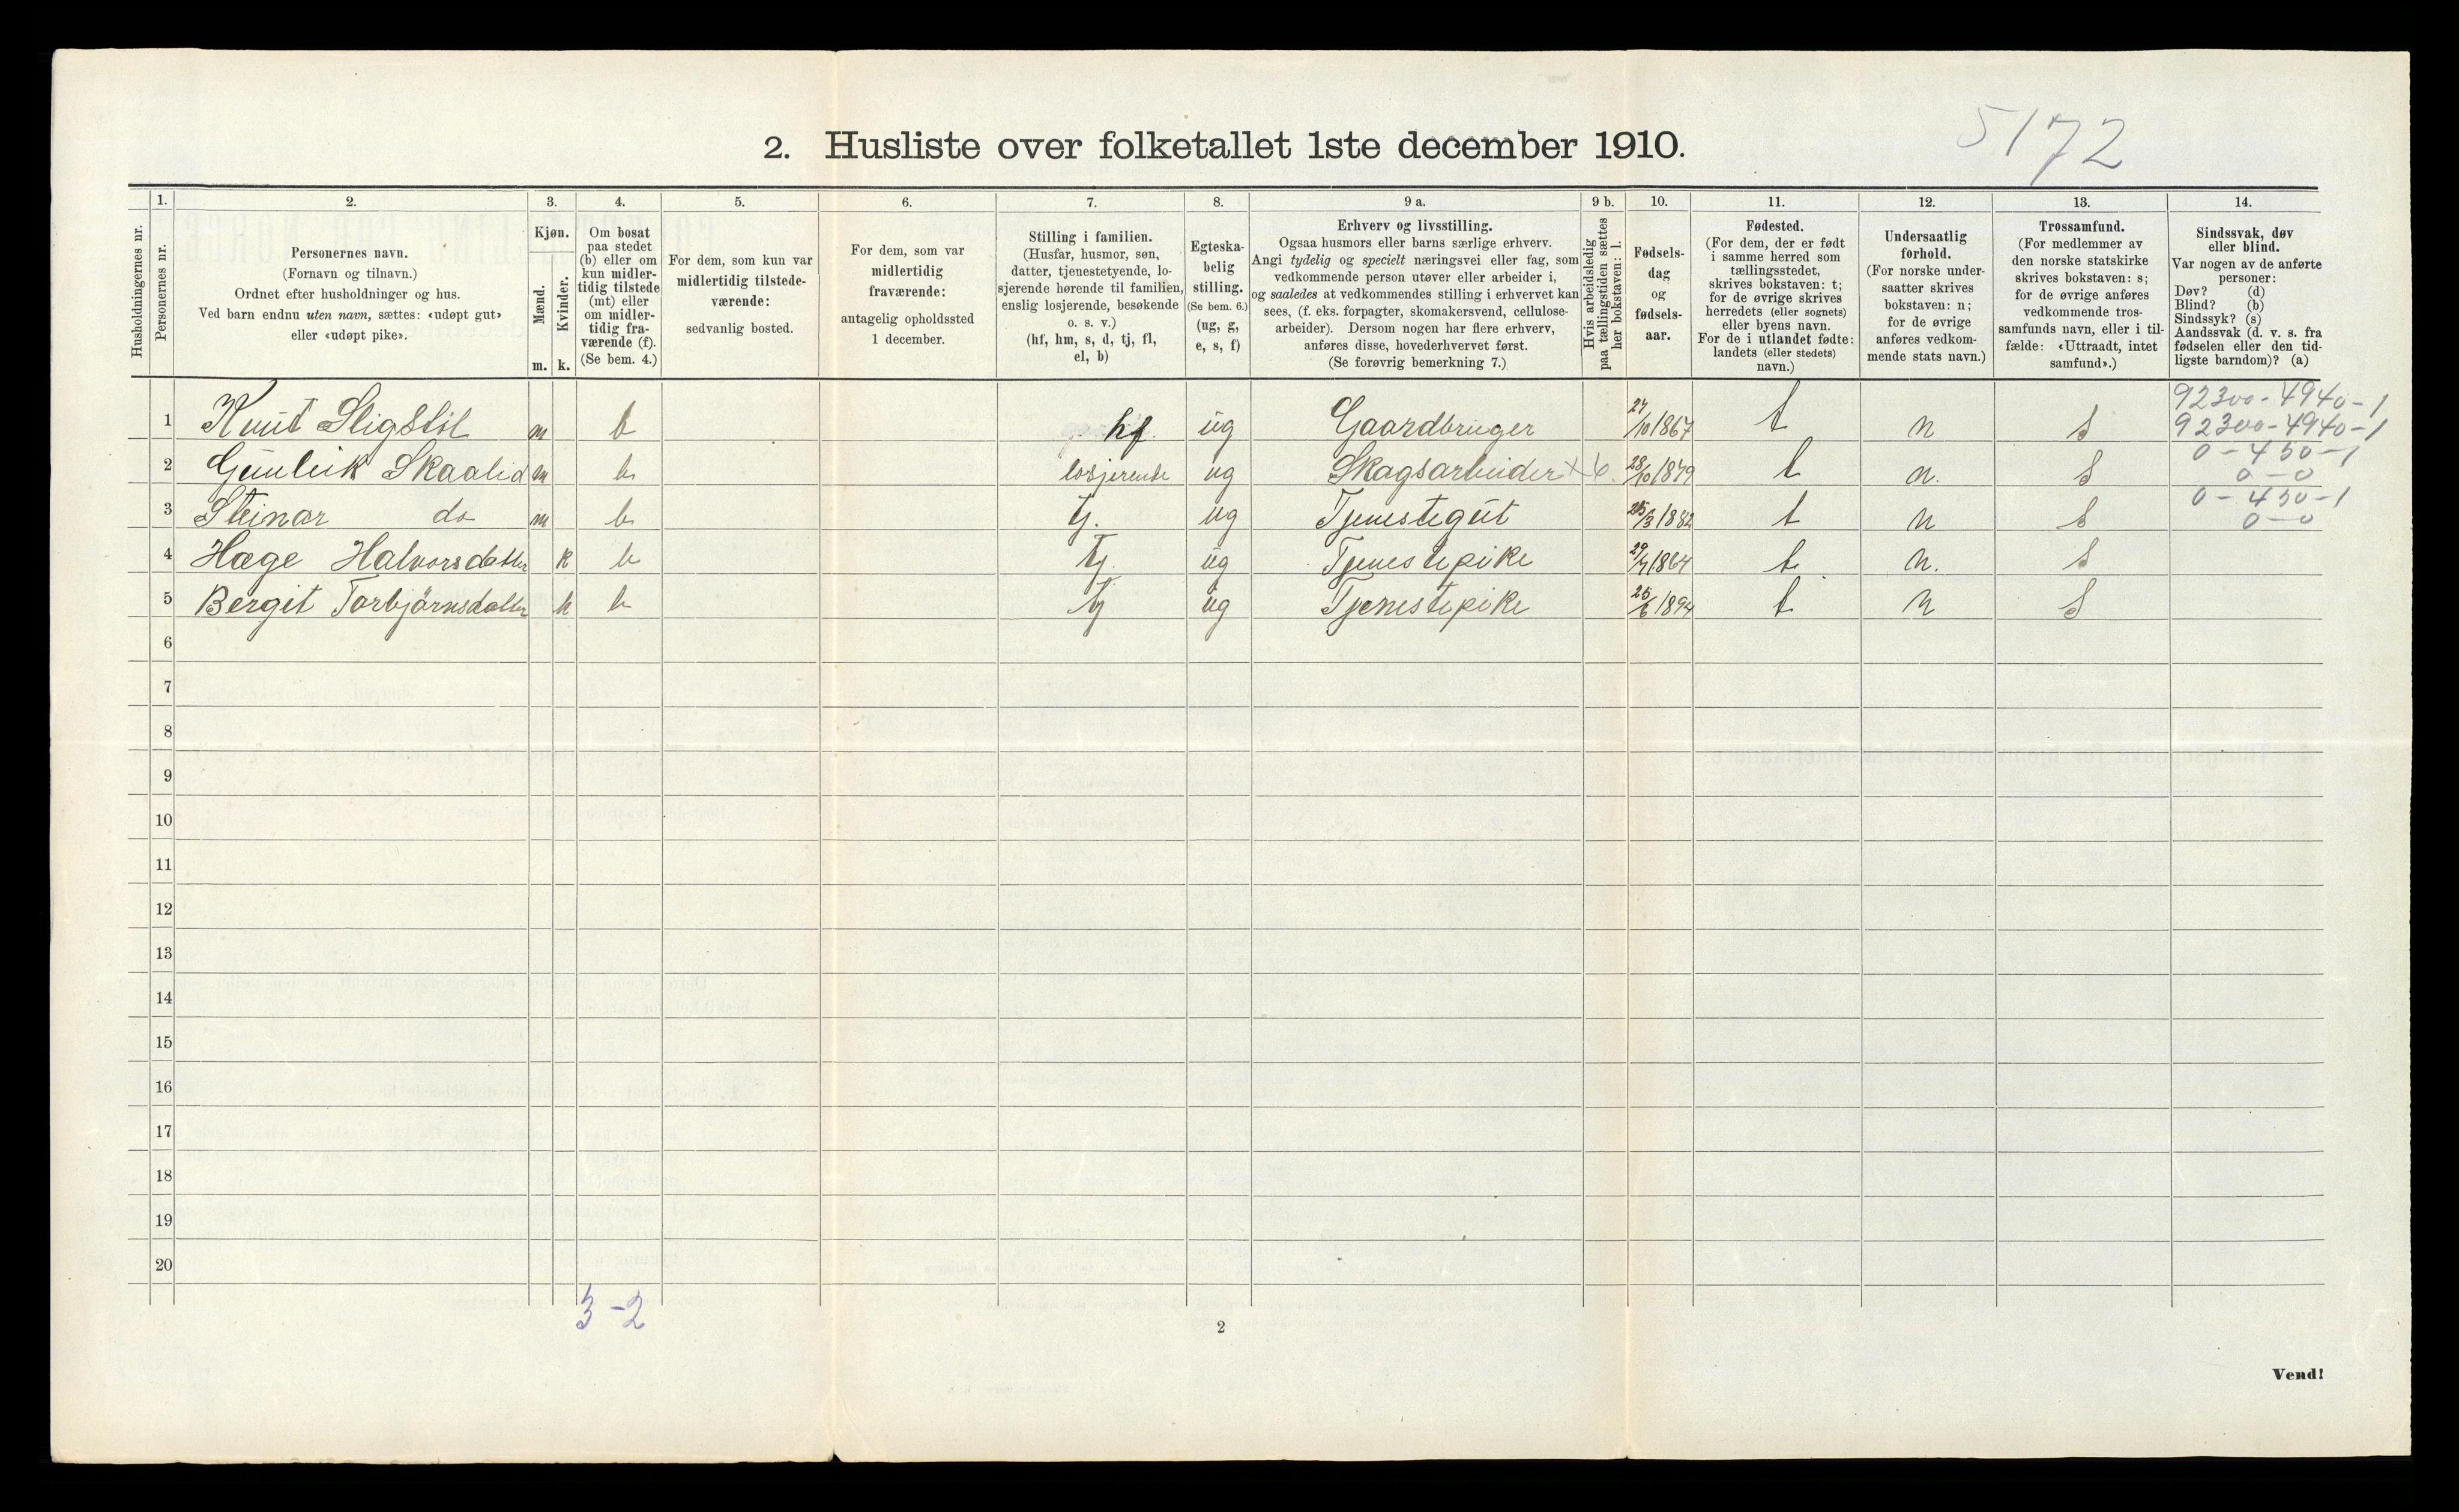 5172
2. Husliste over folketallet 1ste december 1910.
Husholdningernes nr.
1.
Personernes nr.
2.
Personernes navn.
(Fornavn og tilnavn.)
Ordnet efter husholdninger og hus.
Ved barn endnu uten navn, sættes: «udøpt gut»
eller «udøpt pike».
3.
Kjøn.
Mænd.
Kvinder.
m. k.
4.
Om bosat
paa stedet
(b) eller om
kun midler-
tidig tilstede
(mt) eller
om midler-
tidig fra-
værende (f).
(Se bem. 4.)
5.
For dem, som kun var
midlertidig tilstede-
værende:
sedvanlig bosted.
6.
For dem, som var
midlertidig
fraværende:
antagelig opholdssted
1 december.
7.
Stilling i familien.
(Husfar, husmor, søn,
datter, tjenestetyende, lo-
sjerende hørende til familien,
enslig losjerende, besøkende
o. s. v.)
(hf, hm, s, d, tj, fl,
el, b)
8.
Egteska-
belig
stilling.
(Se bem. 6.)
(ug, g,
e, s, f)
9 a.
Erhverv og livsstilling.
Ogsaa husmors eller barns særlige erhverv.
Angi tydelig og specielt næringsvei eller fag, som
vedkommende person utøver eller arbeider i,
og saaledes at vedkommendes stilling i erhvervet kan
sees, (f. eks. forpagter, skomakersvend, cellulose-
arbeider). Dersom nogen har flere erhverv,
anføres disse, hovederhvervet først.
(Se forøvrig bemerkning 7.)
9 b.
Hvis arbeidsledig
paa tællingstiden sættes
her bokstaven: l.
10.
Fødsels-
dag
og
fødsels-
aar.
11.
Fødested.
(For dem, der er født
i samme herred som
tællingsstedet,
skrives bokstaven: t;
for de øvrige skrives
herredets (eller sognets)
eller byens navn.
For de i utlandet fødte:
landets (eller stedets)
navn.)
12.
Undersaatlig
forhold.
(For norske under-
saatter skrives
bokstaven: n;
for de øvrige
anføres vedkom-
mende stats navn.)
13.
Trossamfund.
(For medlemmer av
den norske statskirke
skrives bokstaven: s;
for de øvrige anføres
vedkommende tros-
samfunds navn, eller i til-
fælde: «Uttraadt, intet
samfund».)
14.
Sindssvak, døv
eller blind.
Var nogen av de anførte
personer:
Døv? (d)
Blind? (b)
Sindssyk? (s)
Aandssvak (d. v. s. fra
fødselen eller den tid-
ligste barndom)? (a)
92300-4940-1
1 Knut Sligstöl m b hf. ug Gaardbruger 27/10 1867 t n s 92300-4940-1
0-450-1
2 Gunleik Skaalid m b losjerende ug Skogsarbeider x 6. 28/10 1879 t n. s 0-0
0-450-1
3 Steinar do m b tj. ug Tjenestegut 25/3 1882 t n s 0-0
4 Hæge Halvorsdatter k b tj. ug Tjenestepike t n. s
5 Bergit Torbjörnsdatter k b tj ug Tjenestepike 25/6 1894 t n s
6
7
8
9
10
11
12
13
14
15
16
17
18
19
20
3-2
2
Vend!